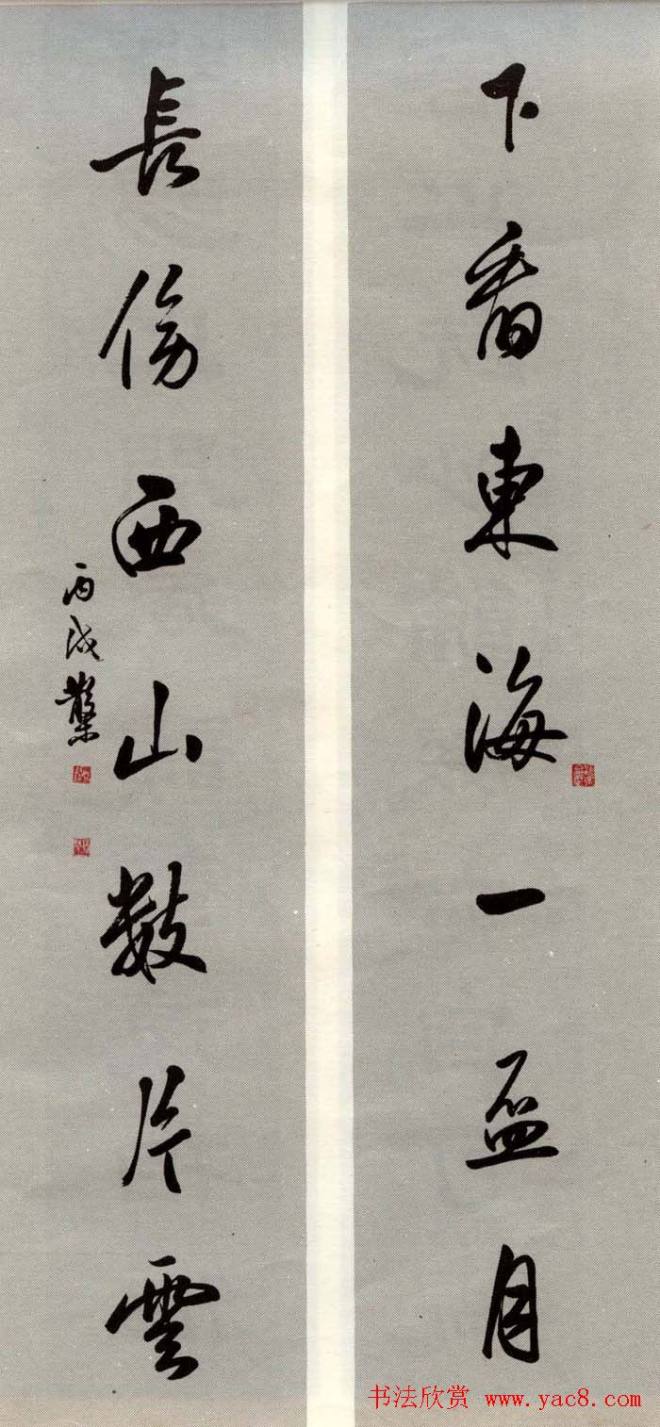 下看東海一盃月
長傍西山數片雲
丙戌
书法欣赏 www.yac8.com